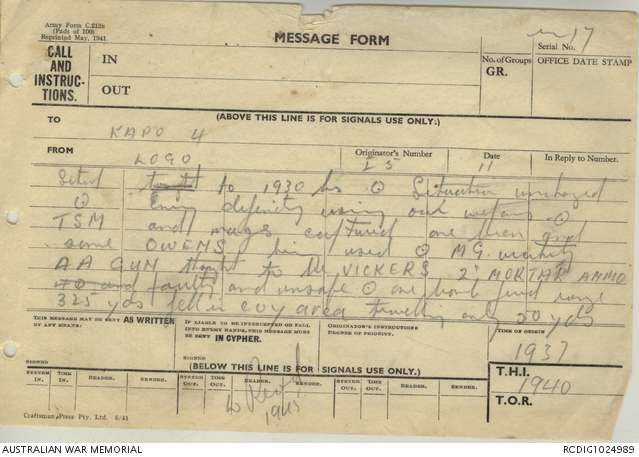 Army Form C.2128
(Pads of 100)
Reprinted May, 1941.
MESSAGE FORM
Serial No. 17
CALL AND INSTRUCTIONS.
IN
OUT
No. of Groups
GR.
OFFICE DATE STAMP
(ABOVE THIS LINE IS FOR SIGNALS USE ONLY.)
TO
KAPO 4
FROM
LOGO
Originator's Number
Date
11
In Reply to Number.
Sitrep to 1930 hrs Situation unchanged
Enemy definitely using our weapons
TSM and mags captured one then and
some OWENS being used MG
AA GUN thought to be VICKERS 2" MORTAR AMMO
faulty and unsafe one bomb fired range
325 yds fell in coy area travelling only 20 yds
THIS MESSAGE MAY BE SENT AS WRITTEN BY ANY MEANS.
SIGNED
IF LIABLE TO BE INTERCEPTED OR FALL INTO ENEMY HANDS, THIS MESSAGE MUST BE SENT IN CYPHER.
SIGNED
ORIGINATOR'S INSTRUCTIONS
DEGREE OF PRIORITY.
TIME OF ORIGIN
1937
(BELOW THIS LINE IS FOR SIGNALS USE ONLY.)
SYSTEM IN. TIME IN. READER. SENDER. SYSTEM OUT. TIME OUT. READER. SENDER. SYSTEM OUT. TIME OUT. READER. SENDER.
T.H.I.
1940
T.O.R.
1945
Craftsman Press Pty. Ltd. 8/41
AUSTRALIAN WAR MEMORIAL
RCDIG1024989